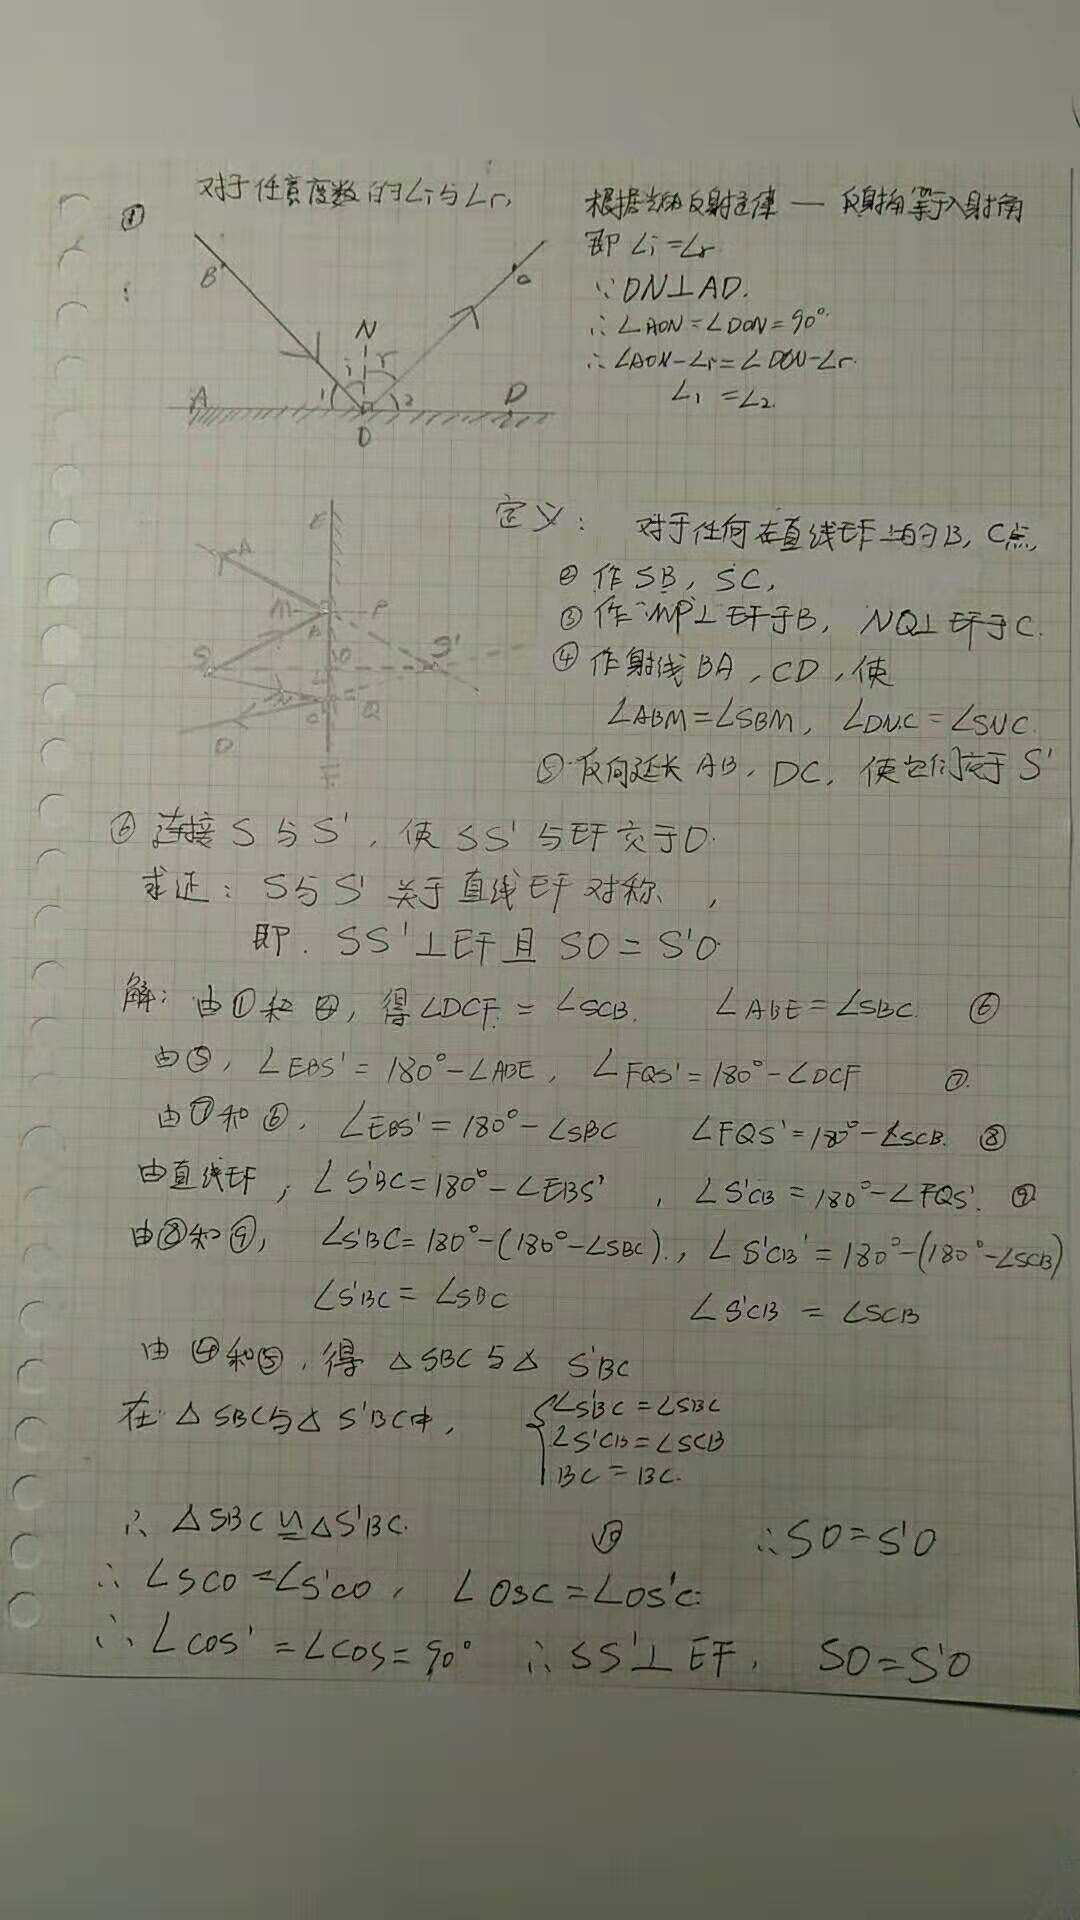 对于任意度数的∠i与∠r,
①
根据光的反射定律 — 反射角等于入射角
即 ∠i=∠r
∵ ON⊥AD.
∴∠AON=∠DON=90°
∴∠AON-∠r=∠DON-∠r
∠1=∠2.
B
C
N
i
r
1
2
A
D
O
定义: 对于任何在直线EF上的B, C点,
② 作SB, SC,
③ 作MP⊥EF于B, NQ⊥EF于C.
④ 作射线BA, CD, 使
∠ABM=∠SBM, ∠DNC=∠SNC.
⑤ 反向延长AB, DC, 使它们交于S'
E
A
M
B
P
S
O
S'
N
C
Q
D
F
⑥ 连接S与S', 使SS'与EF交于O.
求证: S与S'关于直线EF对称,
即. SS'⊥EF且SO=S'O
解: 由①和④, 得∠DCF=∠SCB. ∠ABE=∠SBC. ⑥
由⑤, ∠EBS'=180°-∠ABE, ∠FQS'=180°-∠DCF ⑦.
由⑦和⑥, ∠EBS'=180°-∠SBC ∠FQS'=180°-∠SCB. ⑧
由直线EF, ∠S'BC=180°-∠EBS', ∠S'CB=180°-∠FQS'. ⑨
由⑧和⑨, ∠S'BC=180°-(180°-∠SBC), ∠S'CB=180°-(180°-∠SCB)
∠S'BC=∠SBC ∠S'CB=∠SCB
由④和⑤, 得△SBC与△S'BC
在△SBC与△S'BC中, {∠S'BC=∠SBC
∠S'CB=∠SCB
BC=BC.
∴△SBC≌△S'BC. ⑩ ∴SO=S'O
∴∠SCO=∠S'CO, ∠OSC=∠OS'C.
∴∠COS'=∠COS=90° ∴SS'⊥EF, SO=S'O